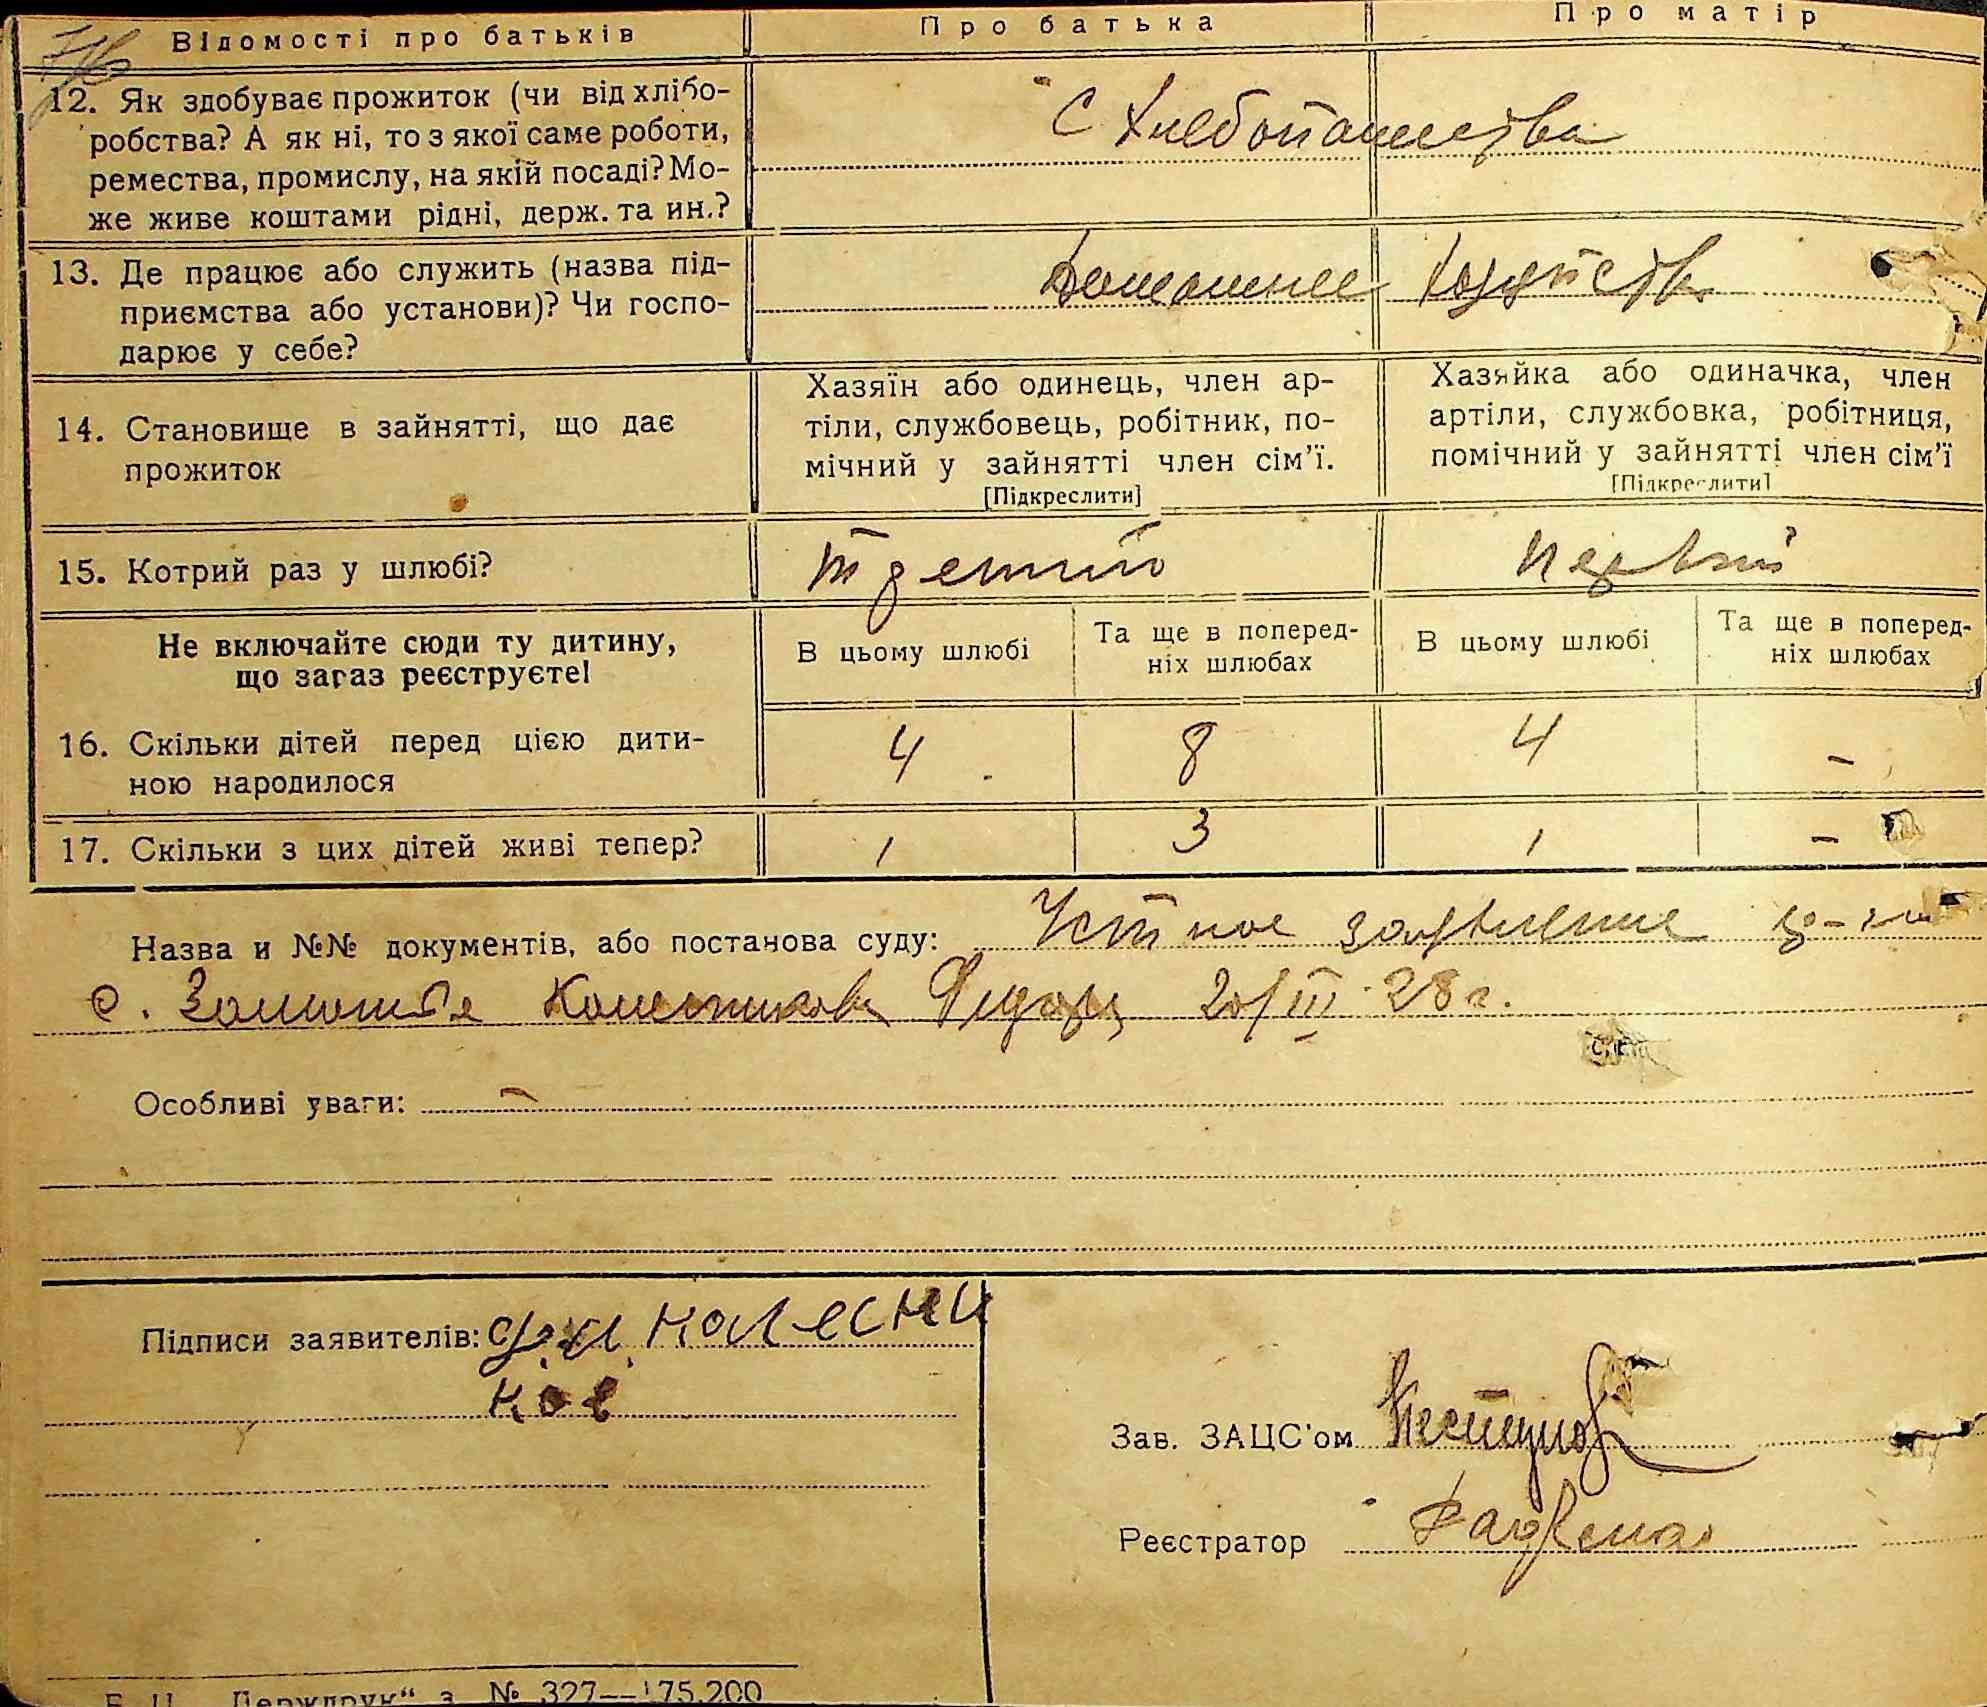 Відомості про батьків
Про батька
Про матір
12. Як здобуває прожиток (чи від хлібо-
робства? А як ні, то з якої саме роботи,
ремества, промислу, на якій посаді? Мо-
же живе коштами рідні, держ. та ин.?
С хлебопашества
13. Де працює або служить (назва під-
приємства або установи)? Чи госпо-
дарює у себе?
Домашнее хозяйство
14. Становище в зайнятті, що дає
прожиток
Хазяїн або одинець, член ар-
тіли, службовець, робітник, по-
мічний у зайнятті член сім'ї.
[Підкреслити]
Хазяйка або одиначка, член
артіли, службовка, робітниця,
помічний у зайнятті член сім'ї
[Підкреслити]
15. Котрий раз у шлюбі?
третий
первый
Не включайте сюди ту дитину,
що зараз реєструєте!
В цьому шлюбі
Та ще в поперед-
ніх шлюбах
В цьому шлюбі
Та ще в поперед-
ніх шлюбах
16. Скільки дітей перед цією дити-
ною народилося
4
8
4
-
17. Скільки з цих дітей живі тепер?
1
3
1
-
Назва и №№ документів, або постанова суду: Устное заявление гр-на
с. Колесникова Федора 20/III 28 г.
Особливі уваги: -
Підписи заявителів: колесни
ков
Зав. ЗАЦС'ом
Реєстратор
"Держдрук" з. № 327--175.200